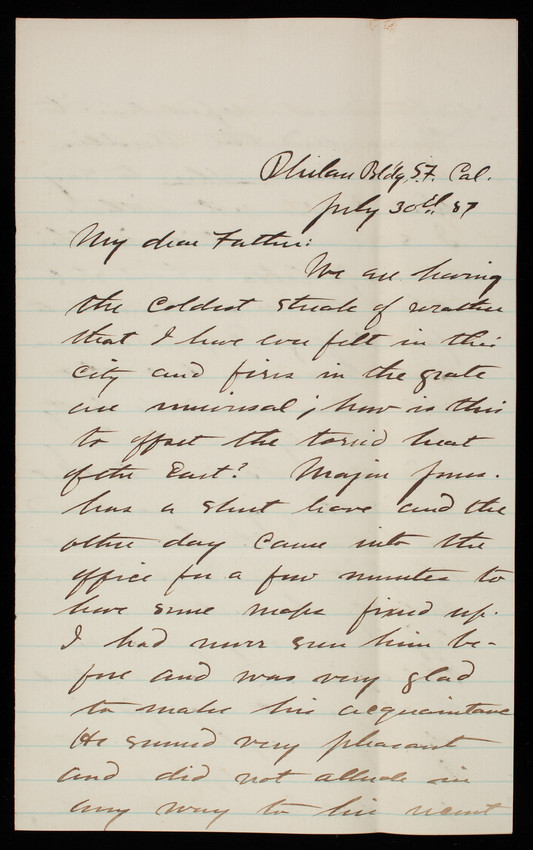 Phelan Bldg, S.F. Cal.
July 30th 87
My dear Father:
We are having
the coldest streak of weather
that I have ever felt in this
city and fires in the grate
are universal; how is this
to offset the torrid heat
of the East? Major Jones.
has a short leave and the
other day came into the
office for a few minutes to
have some maps fixed up.
I had never seen him be-
fore and was very glad
to make his acquaintance
He seemed very pleasant
and did not allude in
any way to his recent